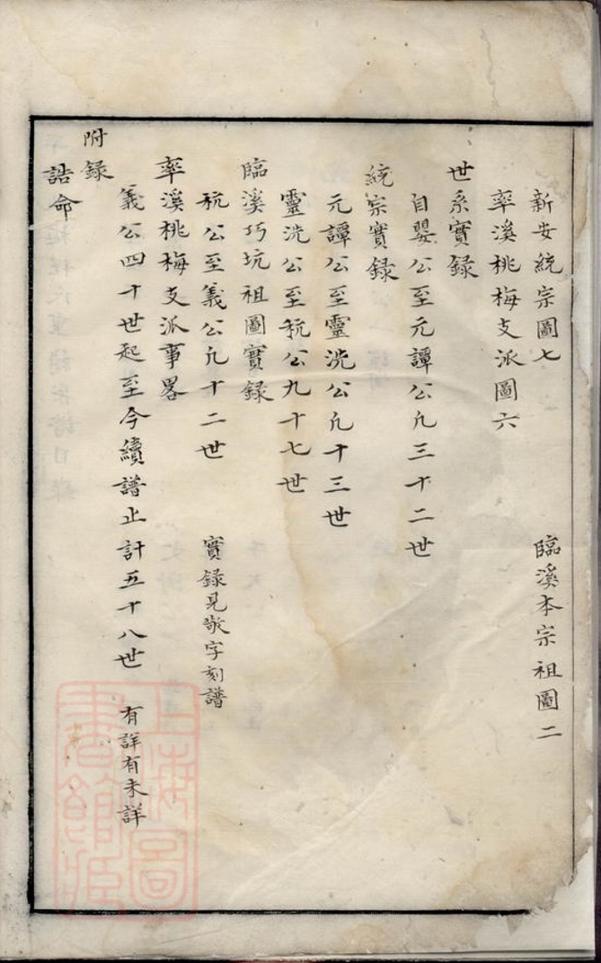 新安統宗圖七　臨溪本宗祖圖二
率溪桃梅支派圖六
世系實録
自嬰公至元譚公凢三十二世
統宗實録
元譚公至靈洗公凢十三世
靈洗公至秔公九十七世
臨溪巧坑祖圖實録
秔公至義公凢十二世　實録見敬字刻譜
率溪桃梅支派事畧
義公四十世起至今續譜止計五十八世　有詳有未詳
附録
誥命
上海圖書館藏